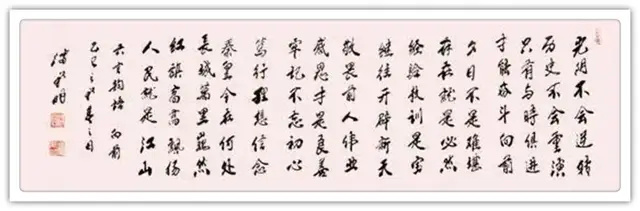 光阴不会逆转
历史不会重演
只有与时俱进
才能奋斗向前
日不是难堪
存在就是必然
经验教训是宝
继往开辟新天
敬畏前人伟业
感恩才是良善
牢记不忘初心
笃行理想信念
秦皇今在何处
长城万里巍然
红旗高高飘扬
人民就是江山
六言韵语 向前